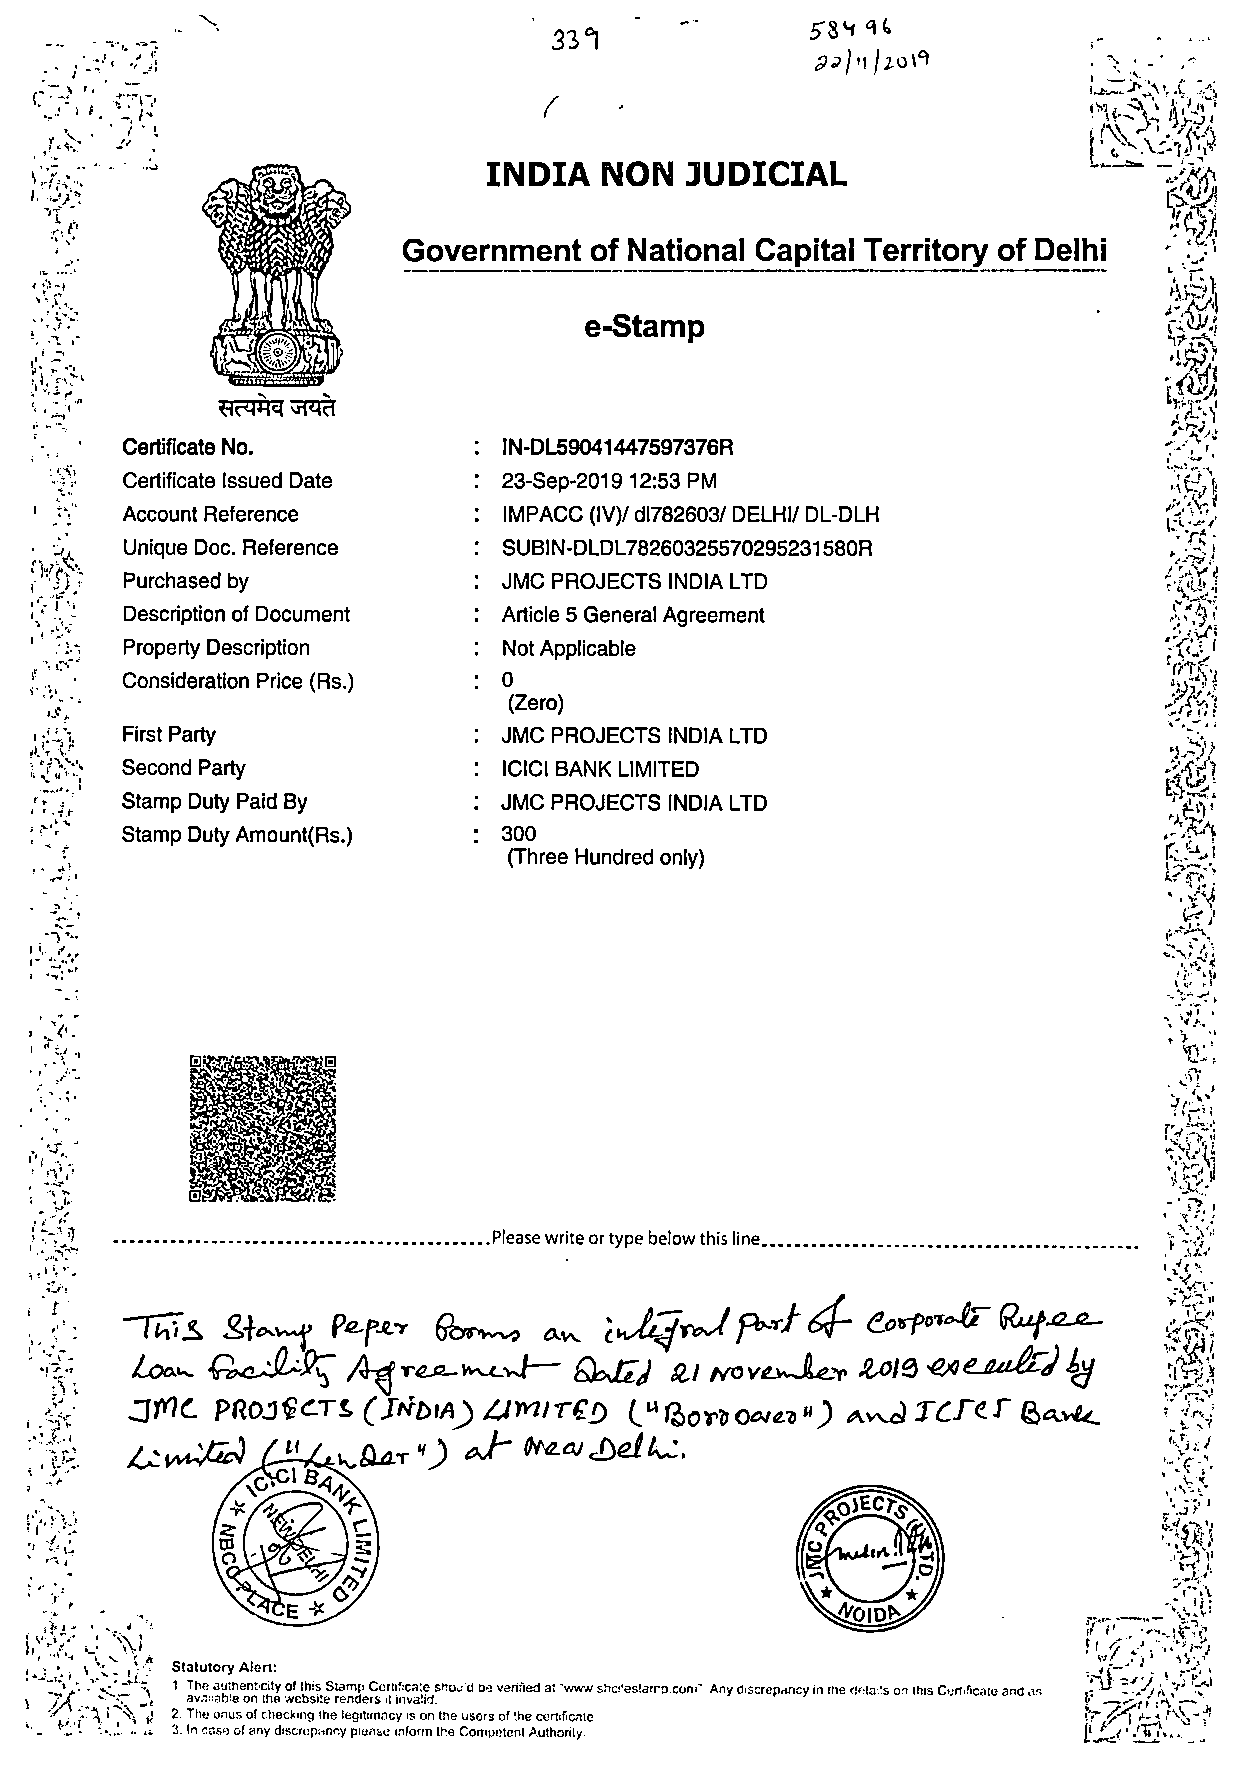 339
58496
22/11/2019
INDIA NON JUDICIAL
Government of National Capital Territory of Delhi
e-Stamp
सत्यमेव जयते
Certificate No. : IN-DL59041447597376R
Certificate Issued Date : 23-Sep-2019 12:53 PM
Account Reference : IMPACC (IV)/ dl782603/ DELHI/ DL-DLH
Unique Doc. Reference : SUBIN-DLDL78260325570295231580R
Purchased by : JMC PROJECTS INDIA LTD
Description of Document : Article 5 General Agreement
Property Description : Not Applicable
Consideration Price (Rs.) : 0
(Zero)
First Party : JMC PROJECTS INDIA LTD
Second Party : ICICI BANK LIMITED
Stamp Duty Paid By : JMC PROJECTS INDIA LTD
Stamp Duty Amount(Rs.) : 300
(Three Hundred only)
Please write or type below this line
This Stamp Peper Forms an integral part of Corporate Rupee
Loan Facility Agreement Dated 21 November 2019 executed by
JMC PROJECTS (INDIA) LIMITED ("Borrower") and ICICI Bank
Limited ("Lender") at New Delhi.
ICICI BANK LIMITED
NEW DELHI
NBCC PLACE
JMC PROJECTS LTD.
NOIDA
Statutory Alert:
1 The authenticity of this Stamp Certificate should be verified at "www shcilestamp.com" Any discrepancy in the details on this Certificate and as
available on the website renders it invalid.
2. The onus of checking the legitimacy is on the users of the certificate
3. In case of any discrepancy please inform the Competent Authority.